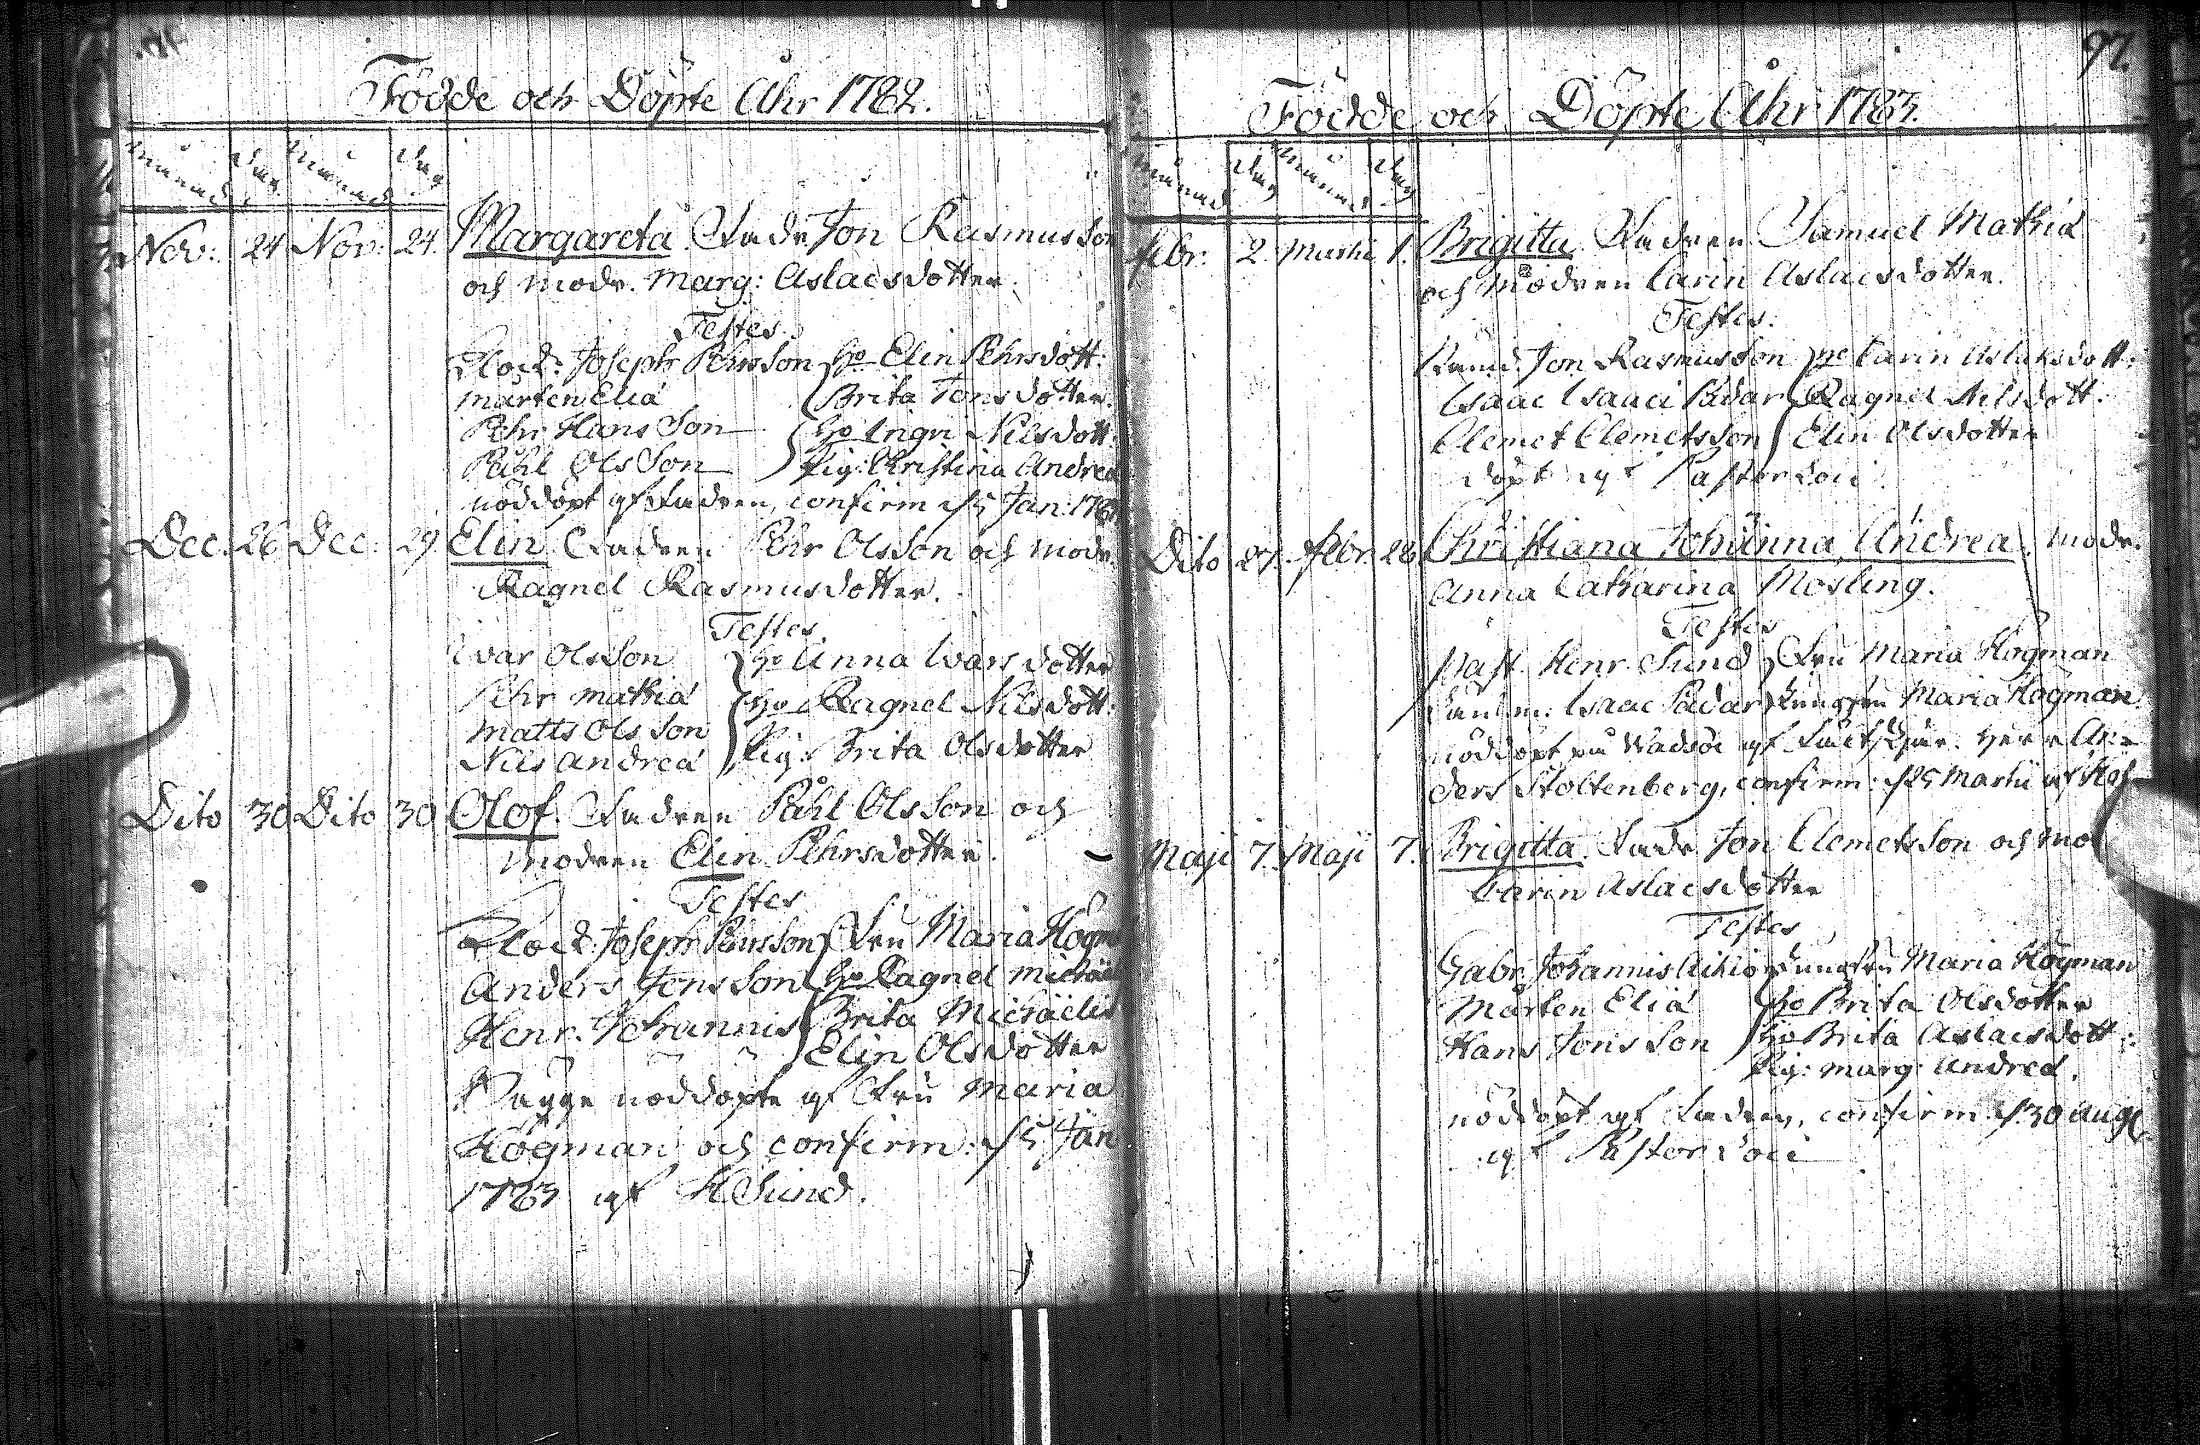 Födde och Döpte Åhr 1782.
Månad Dag Månad Dag
Nov: 24 Nov: 24. Margareta. Fadr Jon Rasmusson
och modr. Marg: Aslacsdotter.
Testes.
Klock: Joseph Pehrsson Ho Elin Pehrsdott:
Mårten Eliæ Brita Jonsdotter.
Pehr Hansson Ho Ingri Nilsdott:
Påhl Olsson Pig: Christina Andreæ
nöddöpt af Fadren, confirm d 5 Jan: 1783
Dec. 26 Dec: 29 Elin Fadren Pehr Olsson och modr.
Ragnel Rasmusdotter.
Testes
Ivar Olsson Ho Anna Ivarsdotter
Pehr Mathiæ Ho Ragnel Nilsdott:
Matts Olsson
Nils Andreæ Pig: Brita Olsdotter
Dito 30 Dito 30 Olof. Fadren Påhl Olsson och
modren Elin Pehrsdotter.
Testes
Klock: Joseph Pehrsson Fru Maria Högm
Anders Jonsson Ho Ragnel Michael
Henr. Johannis Brita Michaelis
Elin Olsdotter
Bägge nöddöpte af Fru Maria
Högman och confirm: d 5 Jan
1783 af H Sund.
97.
Födde och Döpte Åhr 1783.
Månad Dag Månad Dag
Febr. 2. Martii 1. Brigitta. Fadren Samuel Mathiæ
och modren Carin Aslacsdotter.
Testes.
Jon Rasmusson Ho Carin Aslaksdott:
Isaac Isaaci Padar Ragnel Nilsdott.
Clemet Clemetsson Elin Olsdotter
döpt af Pastor Loci.
Dito 27. Febr. 28 Christiana Johanna Andrea. modr.
Anna Catharina Mosling.
Testes
Past. Henr. Sund Fru Maria Högman
Isaac Padar Jungfru Maria Högman
nöddöpt på Wadsöe af Herr An-
ders Stoltenberg, confirm: d 25 Martii af
Maji 7. Maji 7. Brigitta. Fadr. Jon Clemetsson och mo
Carin Aslacsdotter
Testes
Gabr. Johannis Aikio Jungfru Maria Högman
Mårten Eliæ Ho Brita Olsdotter
Hans Jonsson Ho Brita Aslacsdott:
Pig: Marg: Andreæ.
nöddöpt af Fadren, confirm d. 30 Aug
af Pastor Loci